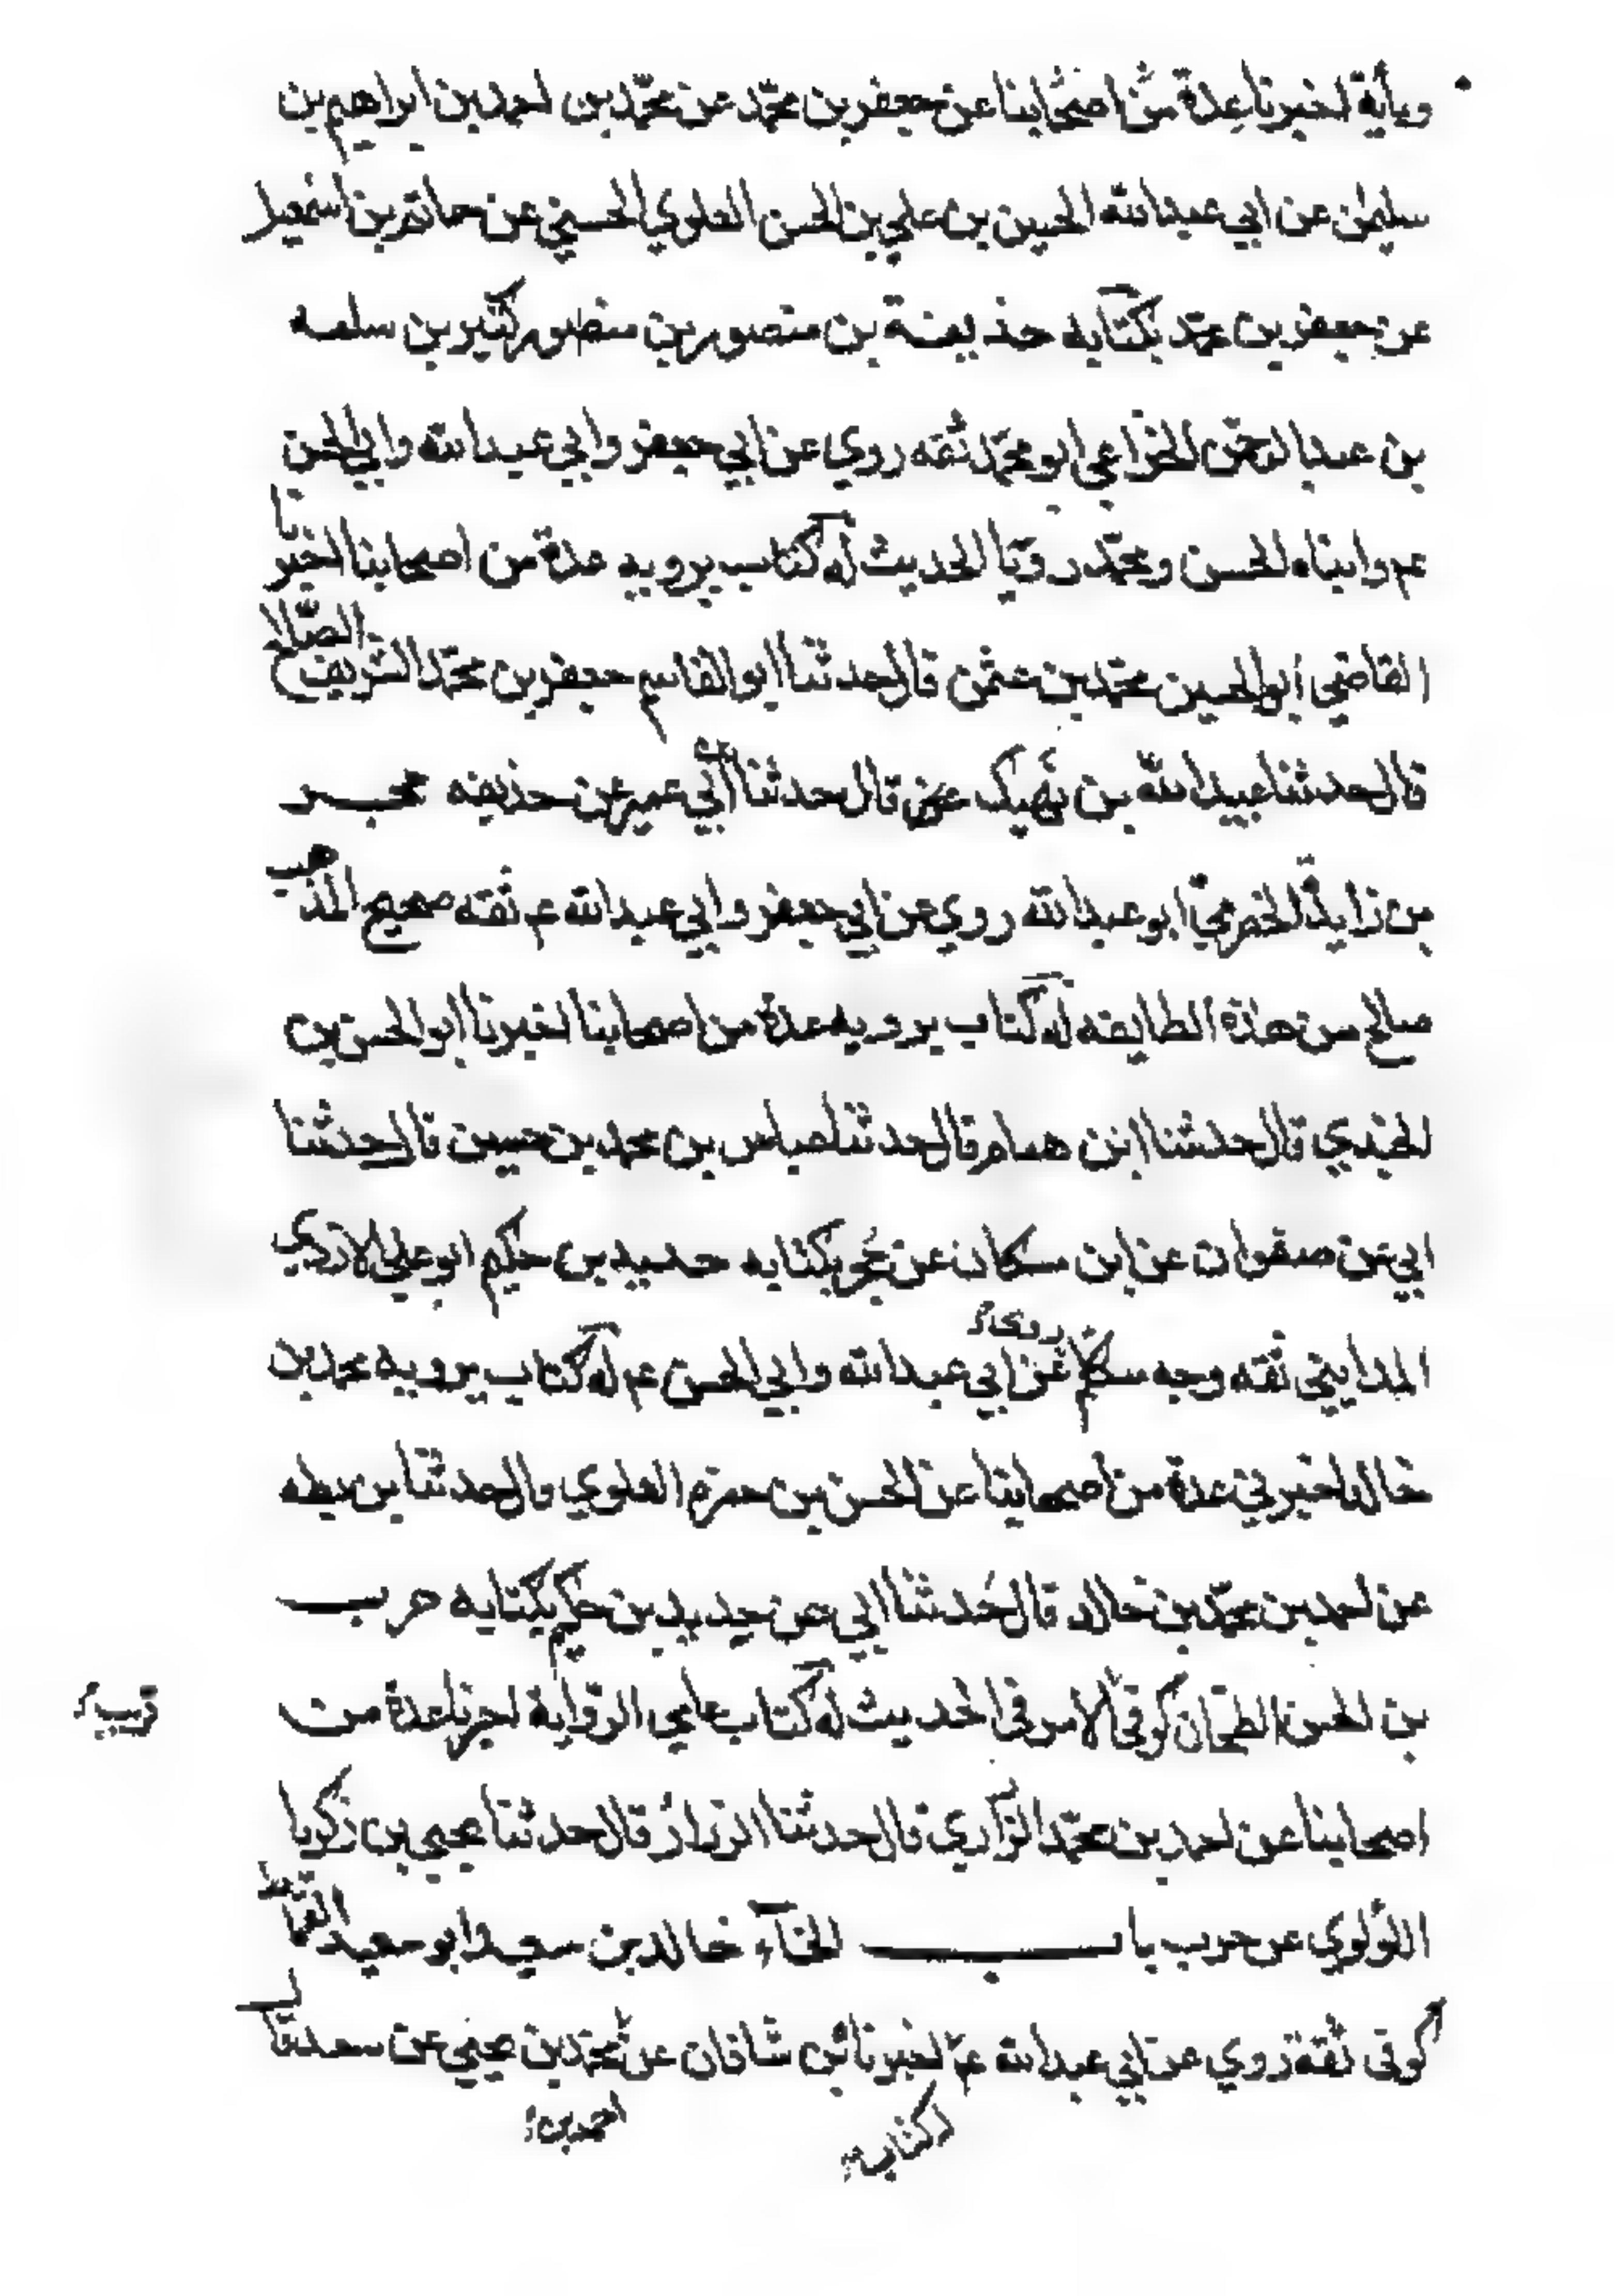 ومأية اخبرنا عدة من اصحابنا عن جعفر بن محمد عن محمد بن احمد بن ابراهيم بن
سليمن عن ابي عبدالله الحسين بن علي بن الحسن العلوي الحسني عن حاتم بن اسمعيل
عن جعفر بن محمد بكتابه حذيفة بن منصور بن كثير بن سلمه
بن عبدالرحمن الخزاعي ابو محمد ثقه روي عن ابي جعفر وابي عبدالله وابي الحسن
عم وابناه الحسن ومحمد رويا الحديث له كتاب يرويه عدة من اصحابنا اخبرنا
القاضي ابو الحسين محمد بن عثمن قال حدثنا ابو القاسم جعفر بن محمد الشريف الصالح
قال حدثنا عبيدالله بن نهيك قال حدثنا ابن ابي عمير عن حذيفه حجر
بن زايدة الحضرمي ابو عبدالله روي عن ابي جعفر وابي عبدالله عم ثقه صحيح المذهب
صالح من هذه الطايفه له كتاب يرويه عدة من اصحابنا اخبرنا ابو الحسن بن
الجندي قال حدثنا ابن همام قال حدثنا عباس بن محمد بن حسين قال حدثنا
ابي عن صفوان عن ابن مسكان عن حجر بكتابه حديد بن حكيم ابو علي الازدي
المدايني ثقه وجه متكلم روي عن ابي عبدالله وابي الحسن عم له كتاب يرويه محمد بن
خالد اخبرني عدة من اصحابنا عن الحسن بن حمزه العلوي قال حدثنا ابن بطه
عن احمد بن محمد بن خالد قال حدثنا ابي عن حديد بن حكيم بكتابه حرب
بن الحسن الطحان كوفي الامر في الحديث له كتاب عامي الرواية اخبرنا عدة من
قريب
اصحابنا عن احمد بن محمد الزراري قال حدثنا الرزاز قال حدثنا يحيى بن زكريا
اللؤلوي عن حرب باب الخآء خالد بن سعيد ابو سعيد القماط
كوفي ثقة روي عن ابي عبدالله عم اخبرنا ابن شاذان عن محمد بن يحيى عن سعد قال
احمد بن
له كتاب